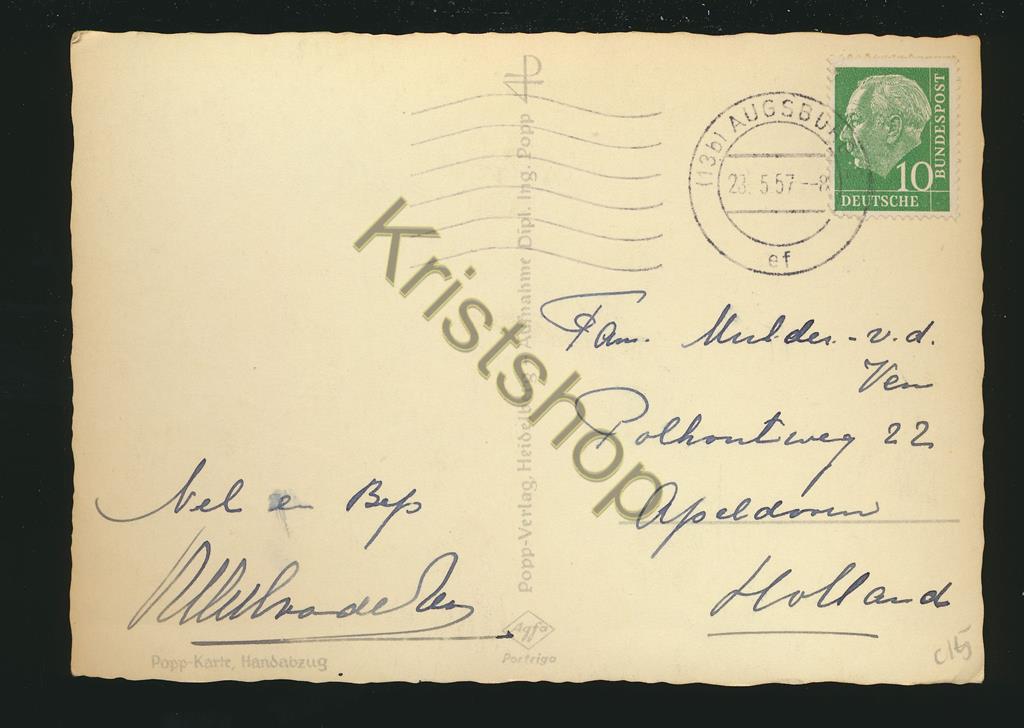 (13b) AUGSBURG
23. 5.57 --8
ef
10
DEUTSCHE
BUNDESPOST
Popp-Verlag, Heidelberg Aufnahme Dipl. Ing. Popp
Kristshop
Fam. Mulder - v.d.
Ven
Polhoutweg 22
Apeldoorn
Holland
Nel en Bep
Popp-Karte, Handabzug
Agfa
Portriga